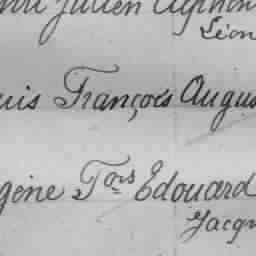 nri Julien Alphon
Léon
uis François Augus
gène Fois Edouard
Jacqu